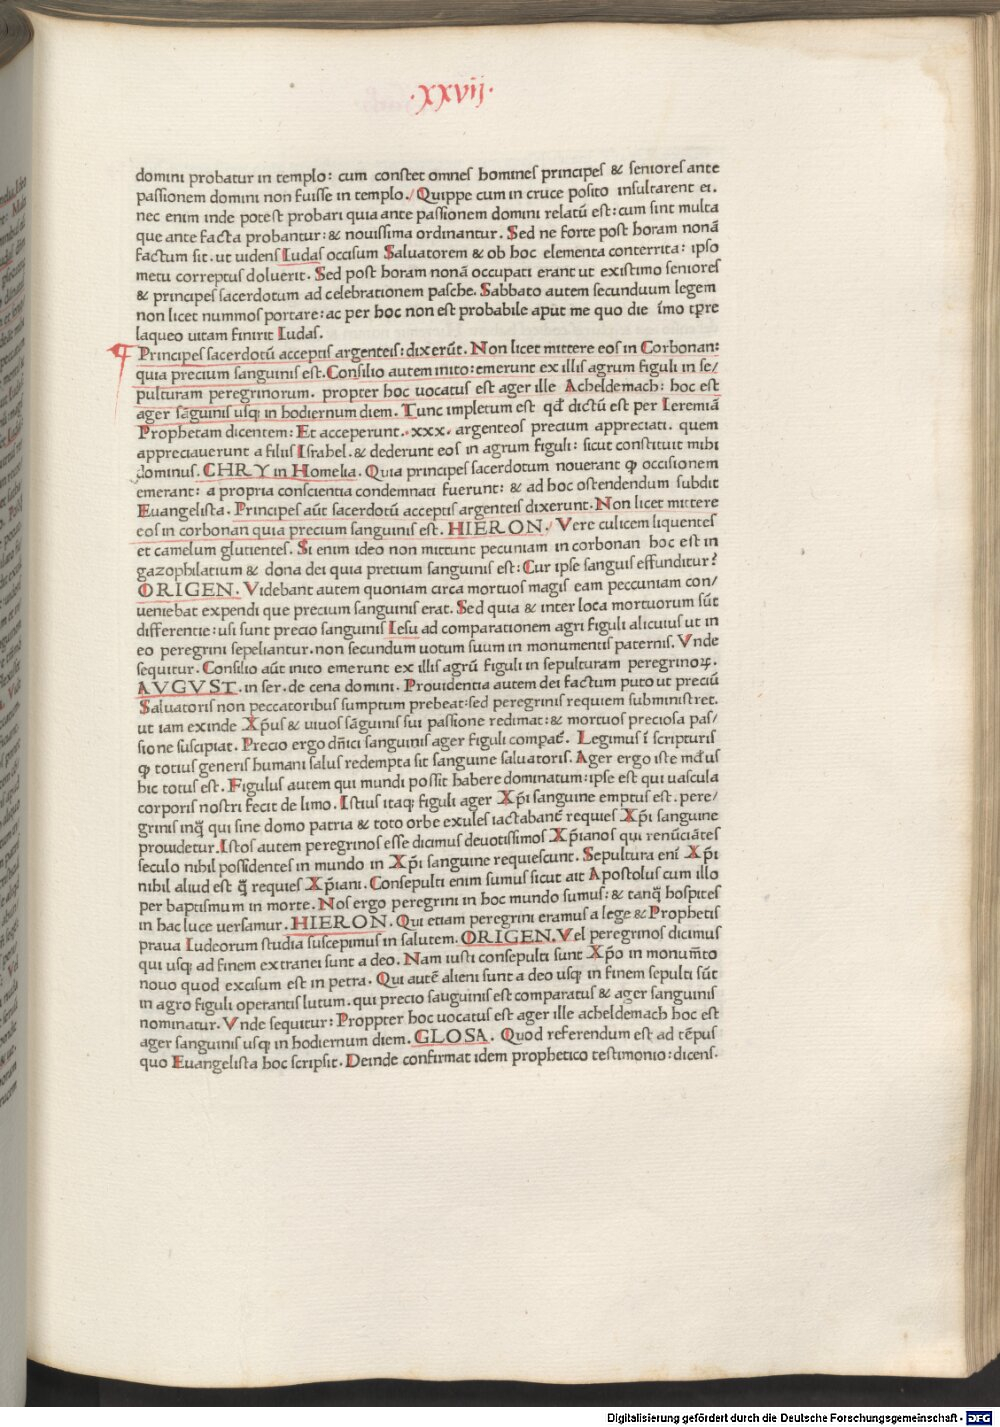 ·xxvij·
domini probatur in templo: cum constet omnes homines principes & seniores ante
passionem domini non fuisse in templo./ Quippe cum in cruce posito insultarent ei.
nec enim inde potest probari quia ante passionem domini relatū est: cum sint multa
que ante facta probantur: & nouissima ordinantur. Sed ne forte post horam nonā
factum sit. ut uidens Iudas occisum Saluatorem & ob hoc elementa conterrita: ipso
metu correptus doluerit. Sed post horam nonā occupati erant ut existimo seniores
& principes sacerdotum ad celebrationem pasche. Sabbato autem secunduum legem
non licet nummos portare: ac per hoc non est probabile aput me quo die īmo tp̄re
laqueo uitam finirit Iudas.
Principes sacerdotū acceptis argenteis: dixerūt. Non licet mittere eos in Corbonan:
quia precium sanguinis est. Consilio autem inito: emerunt ex illis agrum figuli in se/
pulturam peregrinorum. propter hoc uocatus est ager ille Acheldemach: hoc est
ager sāguinis usq; in hodiernum diem. Tunc impletum est qd̄ dictū est per Ieremiā
Prophetam dicentem: Et acceperunt.·xxx. argenteos precium appreciati. quem
appreciauerunt a filiis Israhel. & dederunt eos in agrum figuli: sicut constituit mihi
dominus. CHRY in Homelia. Quia principes sacerdotum nouerant ꝙ occisionem
emerant: a propria conscientia condemnati fuerunt: & ad hoc ostendendum subdit
Euangelista. Principes aūt sacerdotū acceptis argenteis dixerunt. Non licet mittere
eos in corbonan quia precium sanguinis est. HIERON./ Vere culicem liquentes
et camelum glutientes. Si enim ideo non mittunt pecuniam in corbonan hoc est in
gazophilatium & dona dei quia pretium sanguinis est: Cur ipse sanguis effunditur?
ORIGEN. Videbant autem quoniam circa mortuos magis eam peccuniam con/
ueniebat expendi que precium sanguinis erat. Sed quia & inter loca mortuorum sūt
differentie: usi sunt precio sanguinis Iesu ad comparationem agri figuli alicuius ut in
eo peregrini sepeliantur. non secundum uotum suum in monumentis paternis. Vnde
sequitur. Consilio aūt inito emerunt ex illis agrū figuli in sepulturam peregrinoꝝ.
AVGVST. in ser. de cena domini. Prouidentia autem dei factum puto ut preciū
Saluatoris non peccatoribus sumptum prebeat: sed peregrinis requiem subministret.
ut iam exinde Xp̄us & uiuos sāguinis sui passione redimat: & mortuos preciosa pas/
sione suscipiat. Precio ergo dn̄ici sanguinis ager figuli compat̄. Legimus ī scripturis
ꝙ totius generis humani salus redempta sit sanguine saluatoris. Ager ergo iste md̄us
hic totus est. Figulus autem qui mundi possit habere dominatum: ipse est qui uascula
corporis nostri fecit de limo. Istius itaq; figuli ager Xp̄i sanguine emptus est. pere/
grinis inq̄ qui sine domo patria & toto orbe exules iactabant̄ requies Xp̄i sanguine
prouidetur. Istos autem peregrinos esse dicimus deuotissimos Xp̄ianos qui renūciātes
seculo nihil possidentes in mundo in Xp̄i sanguine requiescunt. Sepultura enī Xp̄i
nihil aliud est q̄ requies Xp̄iani. Consepulti enim sumus sicut ait Apostolus cum illo
per baptismum in morte. Nos ergo peregrini in hoc mundo sumus: & tanq̄ hospites
in hac luce uersamur. HIERON. Qui etiam peregrini eramus a lege & Prophetis
praua Iudeorum studia suscepimus in salutem. ORIGEN. Vel peregrinos dicimus
qui usq; ad finem extranei sunt a deo. Nam iusti consepulti sunt Xp̄o in monum̄to
nouo quod excisum est in petra. Qui autē alieni sunt a deo usq; in finem sepulti sūt
in agro figuli operantis lutum. qui precio sauguinis est comparatus & ager sanguinis
nominatur. Vnde sequitur: Proppter hoc uocatus est ager ille acheldemach hoc est
ager sanguinis usq; in hodiernum diem. GLOSA. Quod referendum est ad tēpus
quo Euangelista hoc scripsit. Deinde confirmat idem prophetico testimonio: dicens.
Digitalisierung gefördert durch die Deutsche Forschungsgemeinschaft - DFG